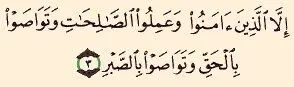 إِلَّا الَّذِينَ ءَامَنُوا۟ وَعَمِلُوا۟ الصَّٰلِحَٰتِ وَتَوَاصَوْا۟
بِالْحَقِّ وَتَوَاصَوْا۟ بِالصَّبْرِ ٣